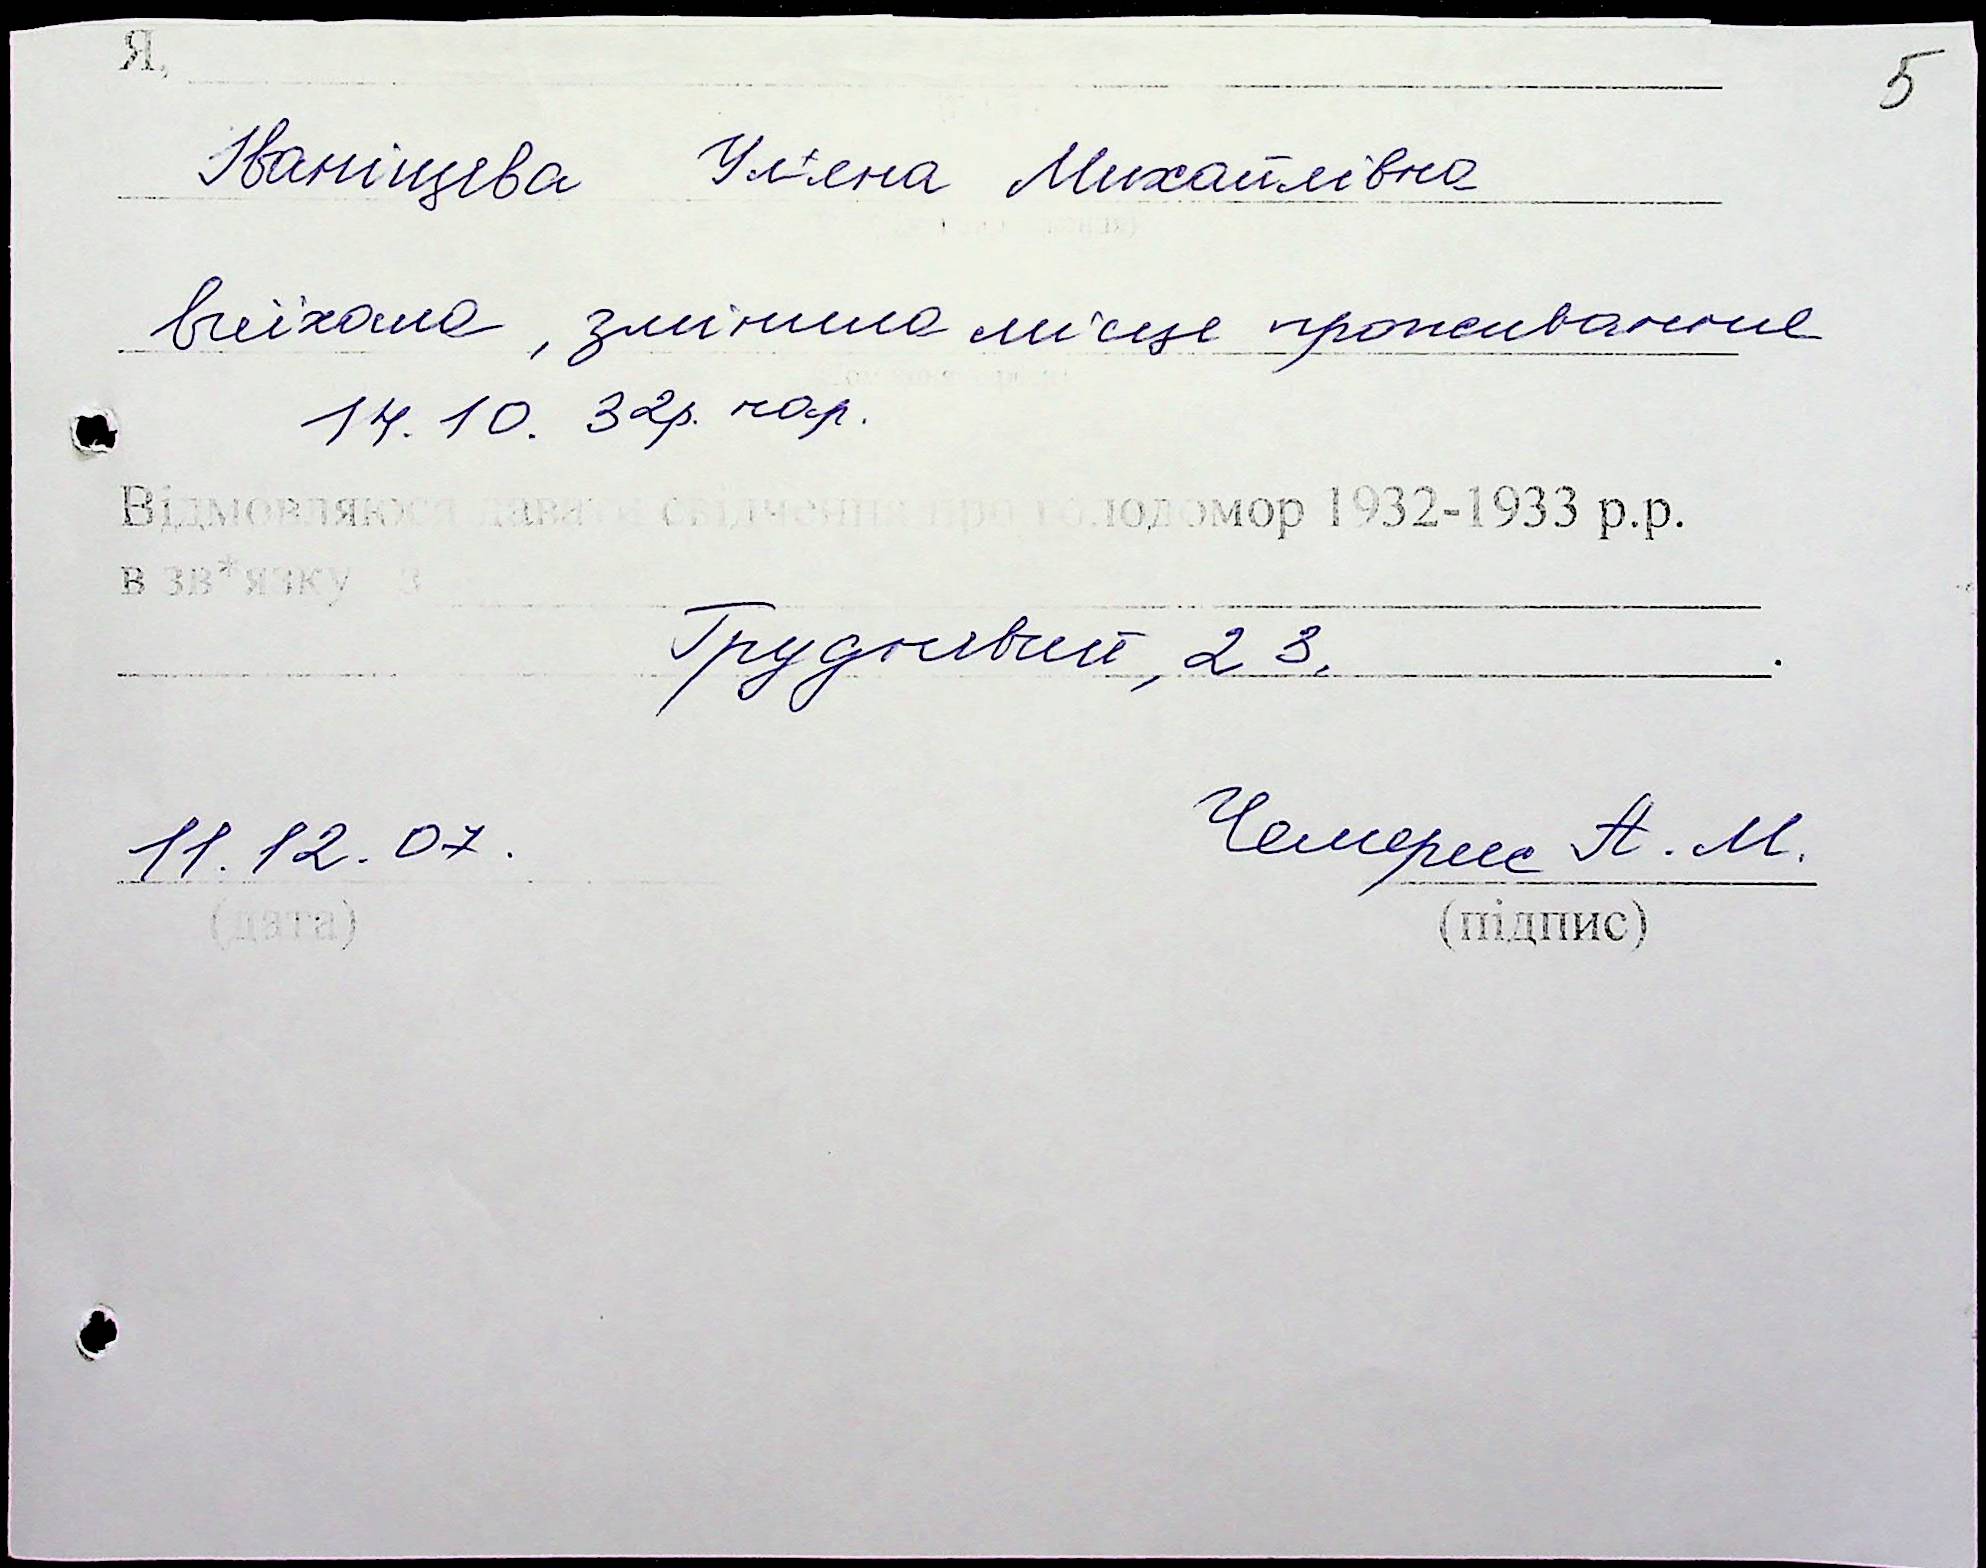 5
Я,
Іваніщева Улʼяна Михайлівна
виїхала, змінила місце проживання
14.10.32р. нар.
Відмовляюся давати свідчення про голодомор 1932-1933 р.р.
в зв*язку з
23.
11.12.07.
Чемерис А.М.
(дата) (підпис)